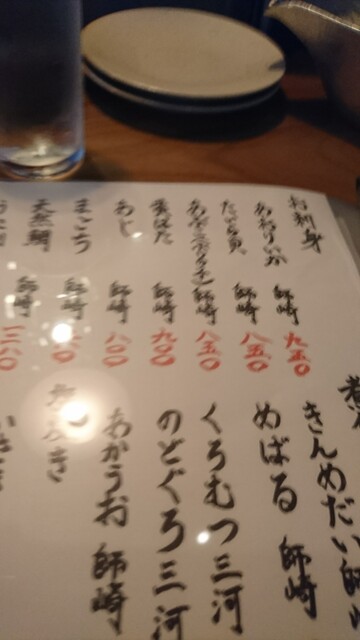 お刺身
あおりいか 師崎 九五〇
たいら貝 師崎 八五〇
師崎 八五〇
黄はた 師崎 九〇〇
あじ 師崎 八〇〇
まごち 師崎
天然鯛 師崎 一三八〇
煮
きんめだい 師崎
めばる 師崎
くろむつ 三河
のどぐろ 三河
あかうお 師崎